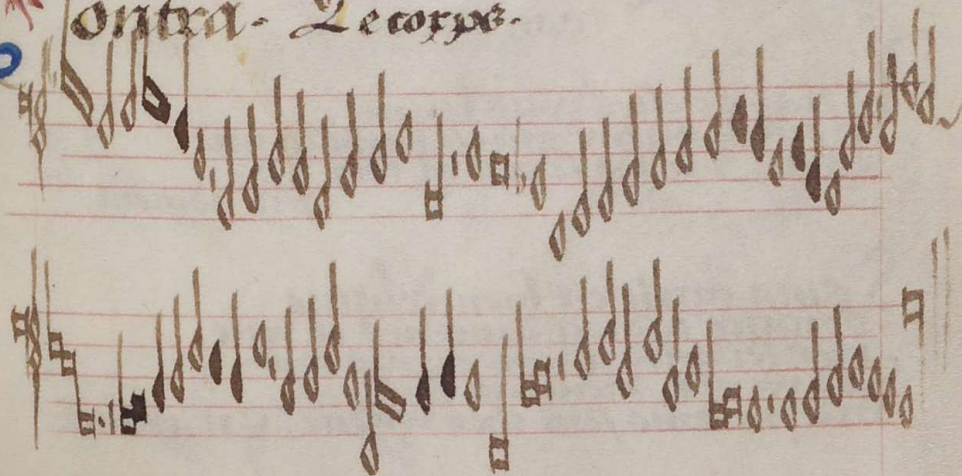 Contra. Le corps.